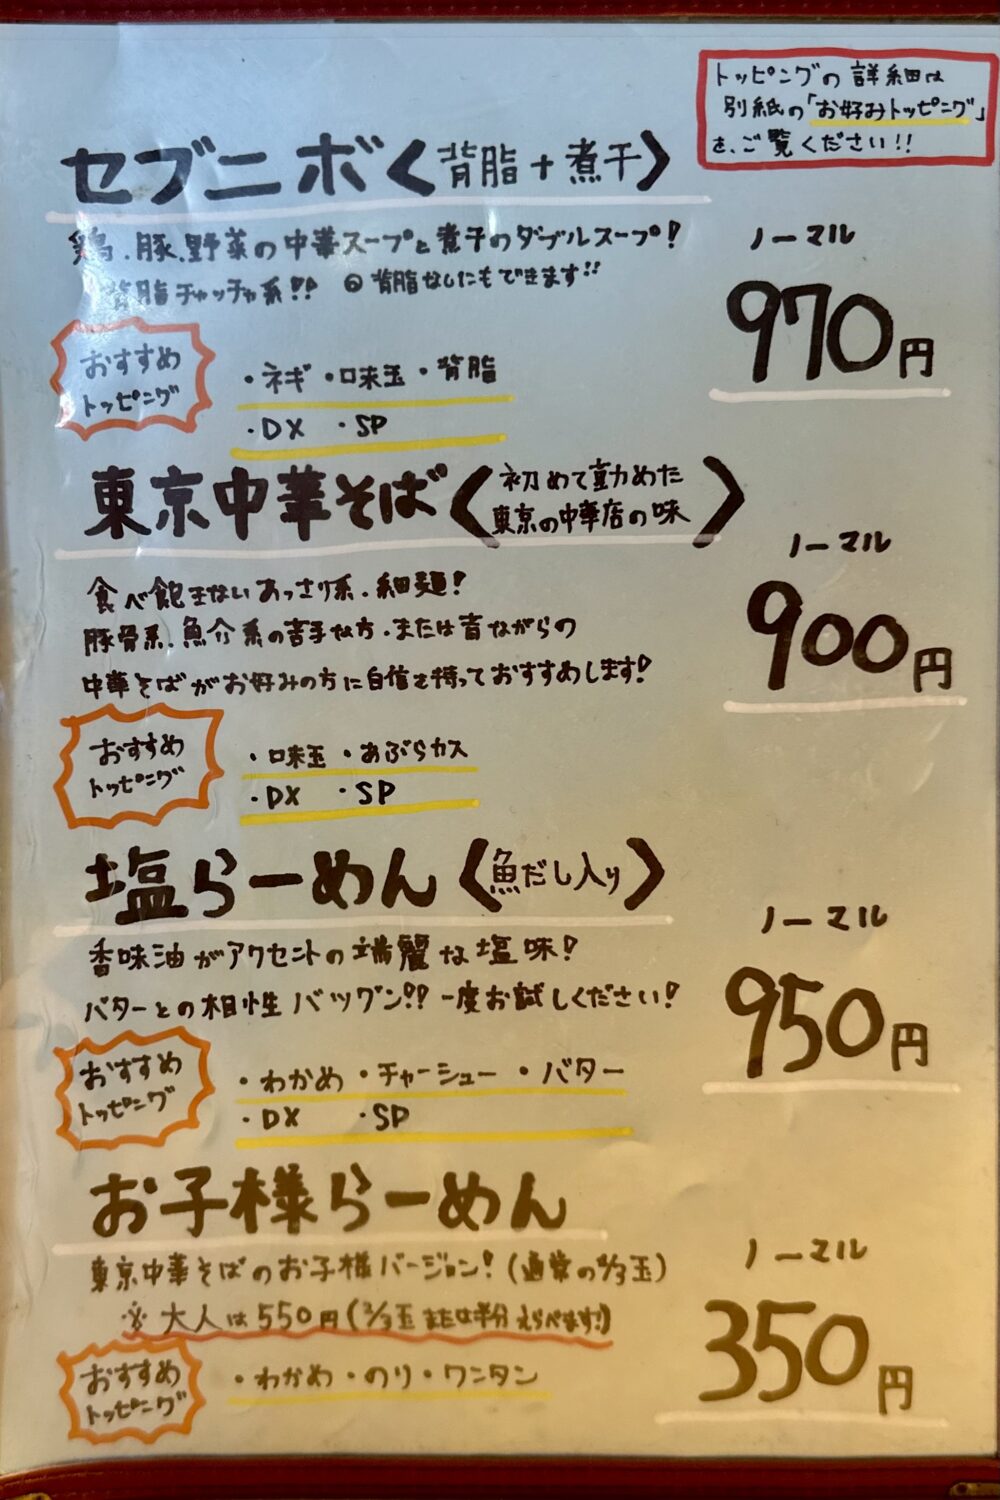 トッピングの詳細は
別紙の「お好みトッピング」
を、ご覧ください!!
セブニボ〈背脂+煮干〉
鶏.豚.野菜の中華スープと煮干のダブルスープ!
背脂チャッチャ系!! ◎背脂なしにもできます!!
ノーマル
970円
おすすめ
トッピング
・ネギ ・味玉 ・背脂
・DX ・SP
東京中華そば〈初めて勤めた
東京の中華店の味〉
ノーマル
900円
食べ飽きないあっさり系.細麺!
豚骨系.魚介系の苦手な方.または昔ながらの
中華そばがお好みの方に自信を持っておすすめします!
おすすめ
トッピング
・味玉 ・あぶらカス
・DX ・SP
塩らーめん〈魚だし入り〉
香味油がアクセントの端麗な塩味!
バターとの相性バツグン!! 一度お試しください!
ノーマル
950円
おすすめ
トッピング
・わかめ ・チャーシュー ・バター
・DX ・SP
お子様らーめん
東京中華そばのお子様バージョン!(通常の2/3玉)
※大人は550円(2/3玉または半分えらべます!)
ノーマル
350円
おすすめ
トッピング
・わかめ ・のり ・ワンタン